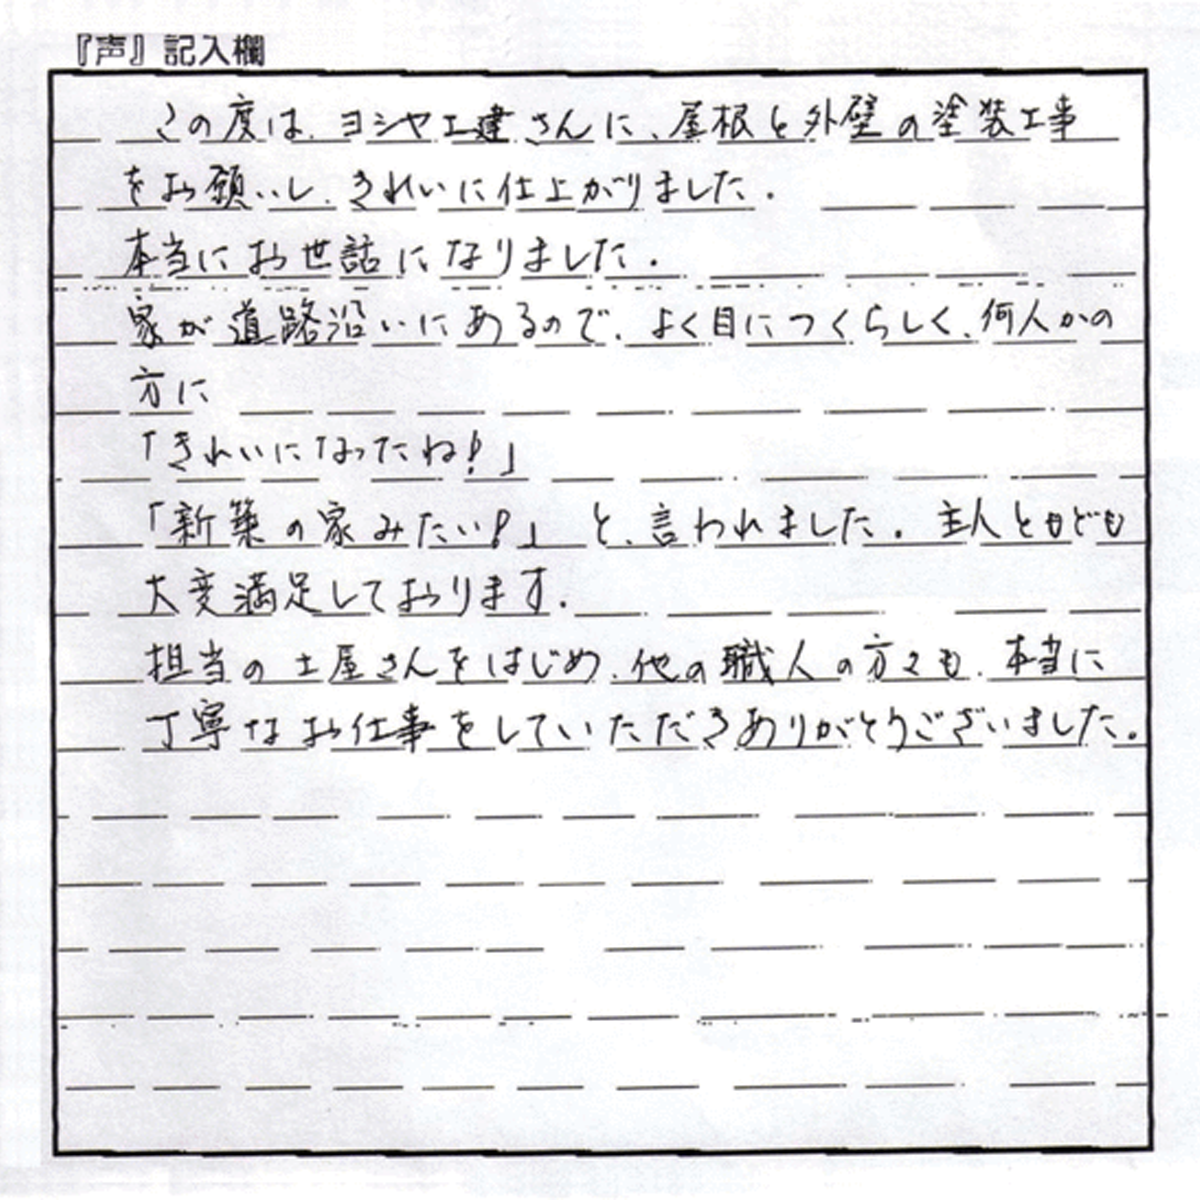 『声』記入欄
この度は、ヨシヤ工建さんに、屋根と外壁の塗装工事
をお願いし、きれいに仕上がりました。
本当にお世話になりました。
家が道路沿いにあるので、よく目につくらしく、何人かの
方に
「きれいになったね!」
「新築の家みたい!」と、言われました。主人ともども
大変満足しております。
担当の土屋さんをはじめ、他の職人の方々も、本当に
丁寧なお仕事をしていただきありがとうございました。